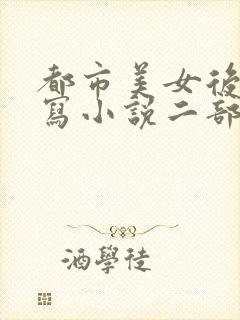 都市美女後
寫小說二部
酒學徒